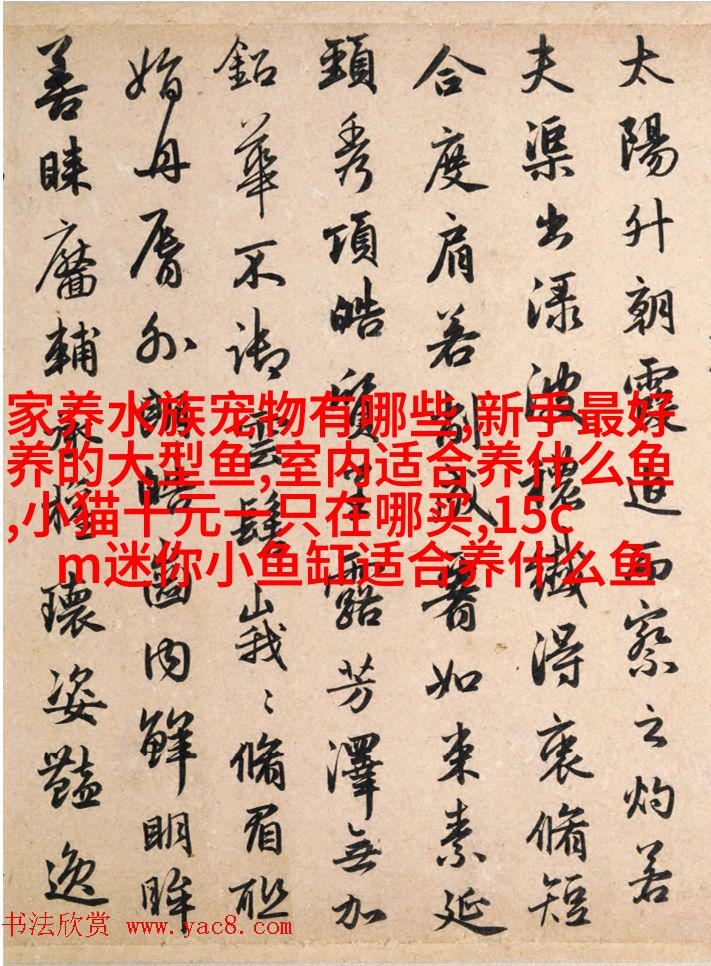 太陽升朝霞迫而察之灼若
夫渠出淥波穠纖得衷脩短
合度肩若削成如束素延
頸秀項皓質呈露芳澤無加
鉛華不御雲髻峩〻脩眉聯
娟丹脣外朗皓齒內鮮明眸
善睞靨輔承權環姿豔逸
家养水族宠物有哪些,新手最好
养的大型鱼,室内适合养什么鱼
,小猫十元一只在哪买,15c
m迷你小鱼缸适合养什么鱼
书法欣赏 www.yac8.com